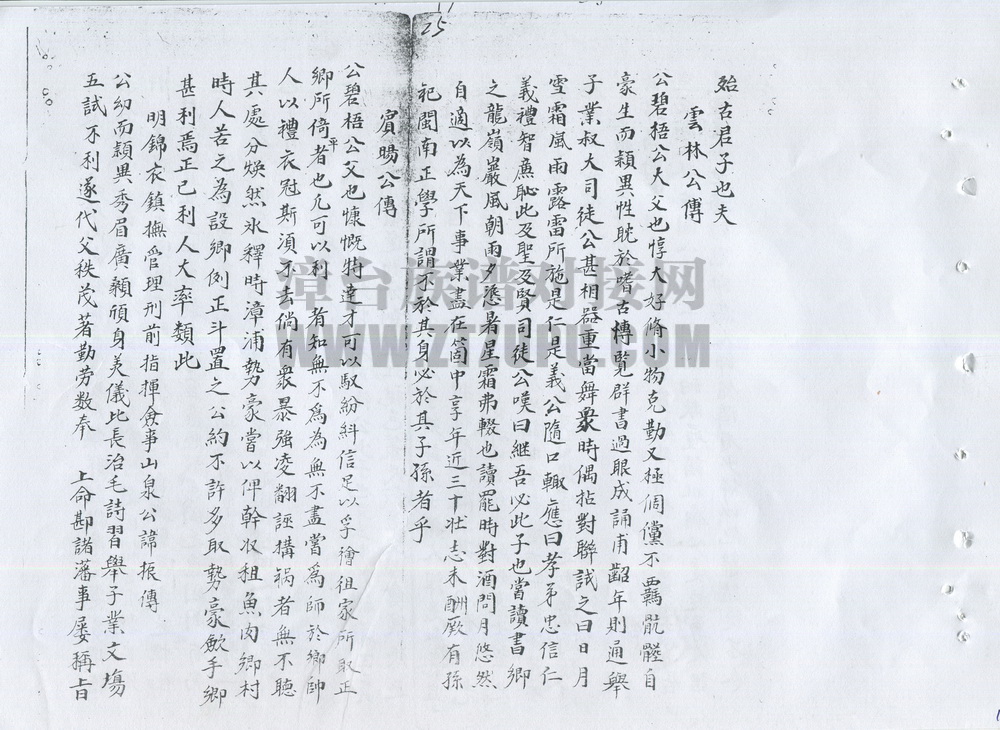 25
殆古君子也夫
雲林公傳
公碧梧公大父也惇大好脩小物克勤又極倜儻不羈骯髒自
豪生而穎異性耽於嗜古博覽群書過眼成誦甫齠年則通舉
子業叔大司徒公甚相器重當舞象時偶拈對聯試之曰日月
雪霜風雨露雷所施是仁是義公隨口輙應曰孝弟忠信仁
義禮智廉恥此及聖及賢司徒公嘆曰繼吾必此子也當讀書鄉
之龍嶺巖風朝雨夕憑暑星霜弗輟也讀罷時對酒問月悠然
自適以為天下事業盡在箇中享年近三十壯志未酬厥有孫
祀閩南正學所謂不於其身必於其子孫者乎
賓暘公傳
公碧梧公父也慷慨特達才可以馭紛糾信足以孚衿徂家所取正
鄉所倚平者也凡可以利 者知無不為為無不盡嘗為師於鄉帥
人以禮衣冠斯須不去倘有衆暴強凌翻誣搆禍者無不聽
其處分焕然氷釋時漳浦勢豪嘗以俾幹收租魚肉鄉村
時人苦之為設鄉例正斗置之公約不許多取勢豪歛手鄉
甚利焉正已利人大率類此
明錦衣鎮撫管理刑前指揮僉事山泉公諱振傳
公幼而穎異秀眉廣顙頎身美儀比長治毛詩習舉子業文塲
五試不利遂代父秩茂著勤劳数奉 上命勘諸藩事屡稱旨
漳台族谱对接网